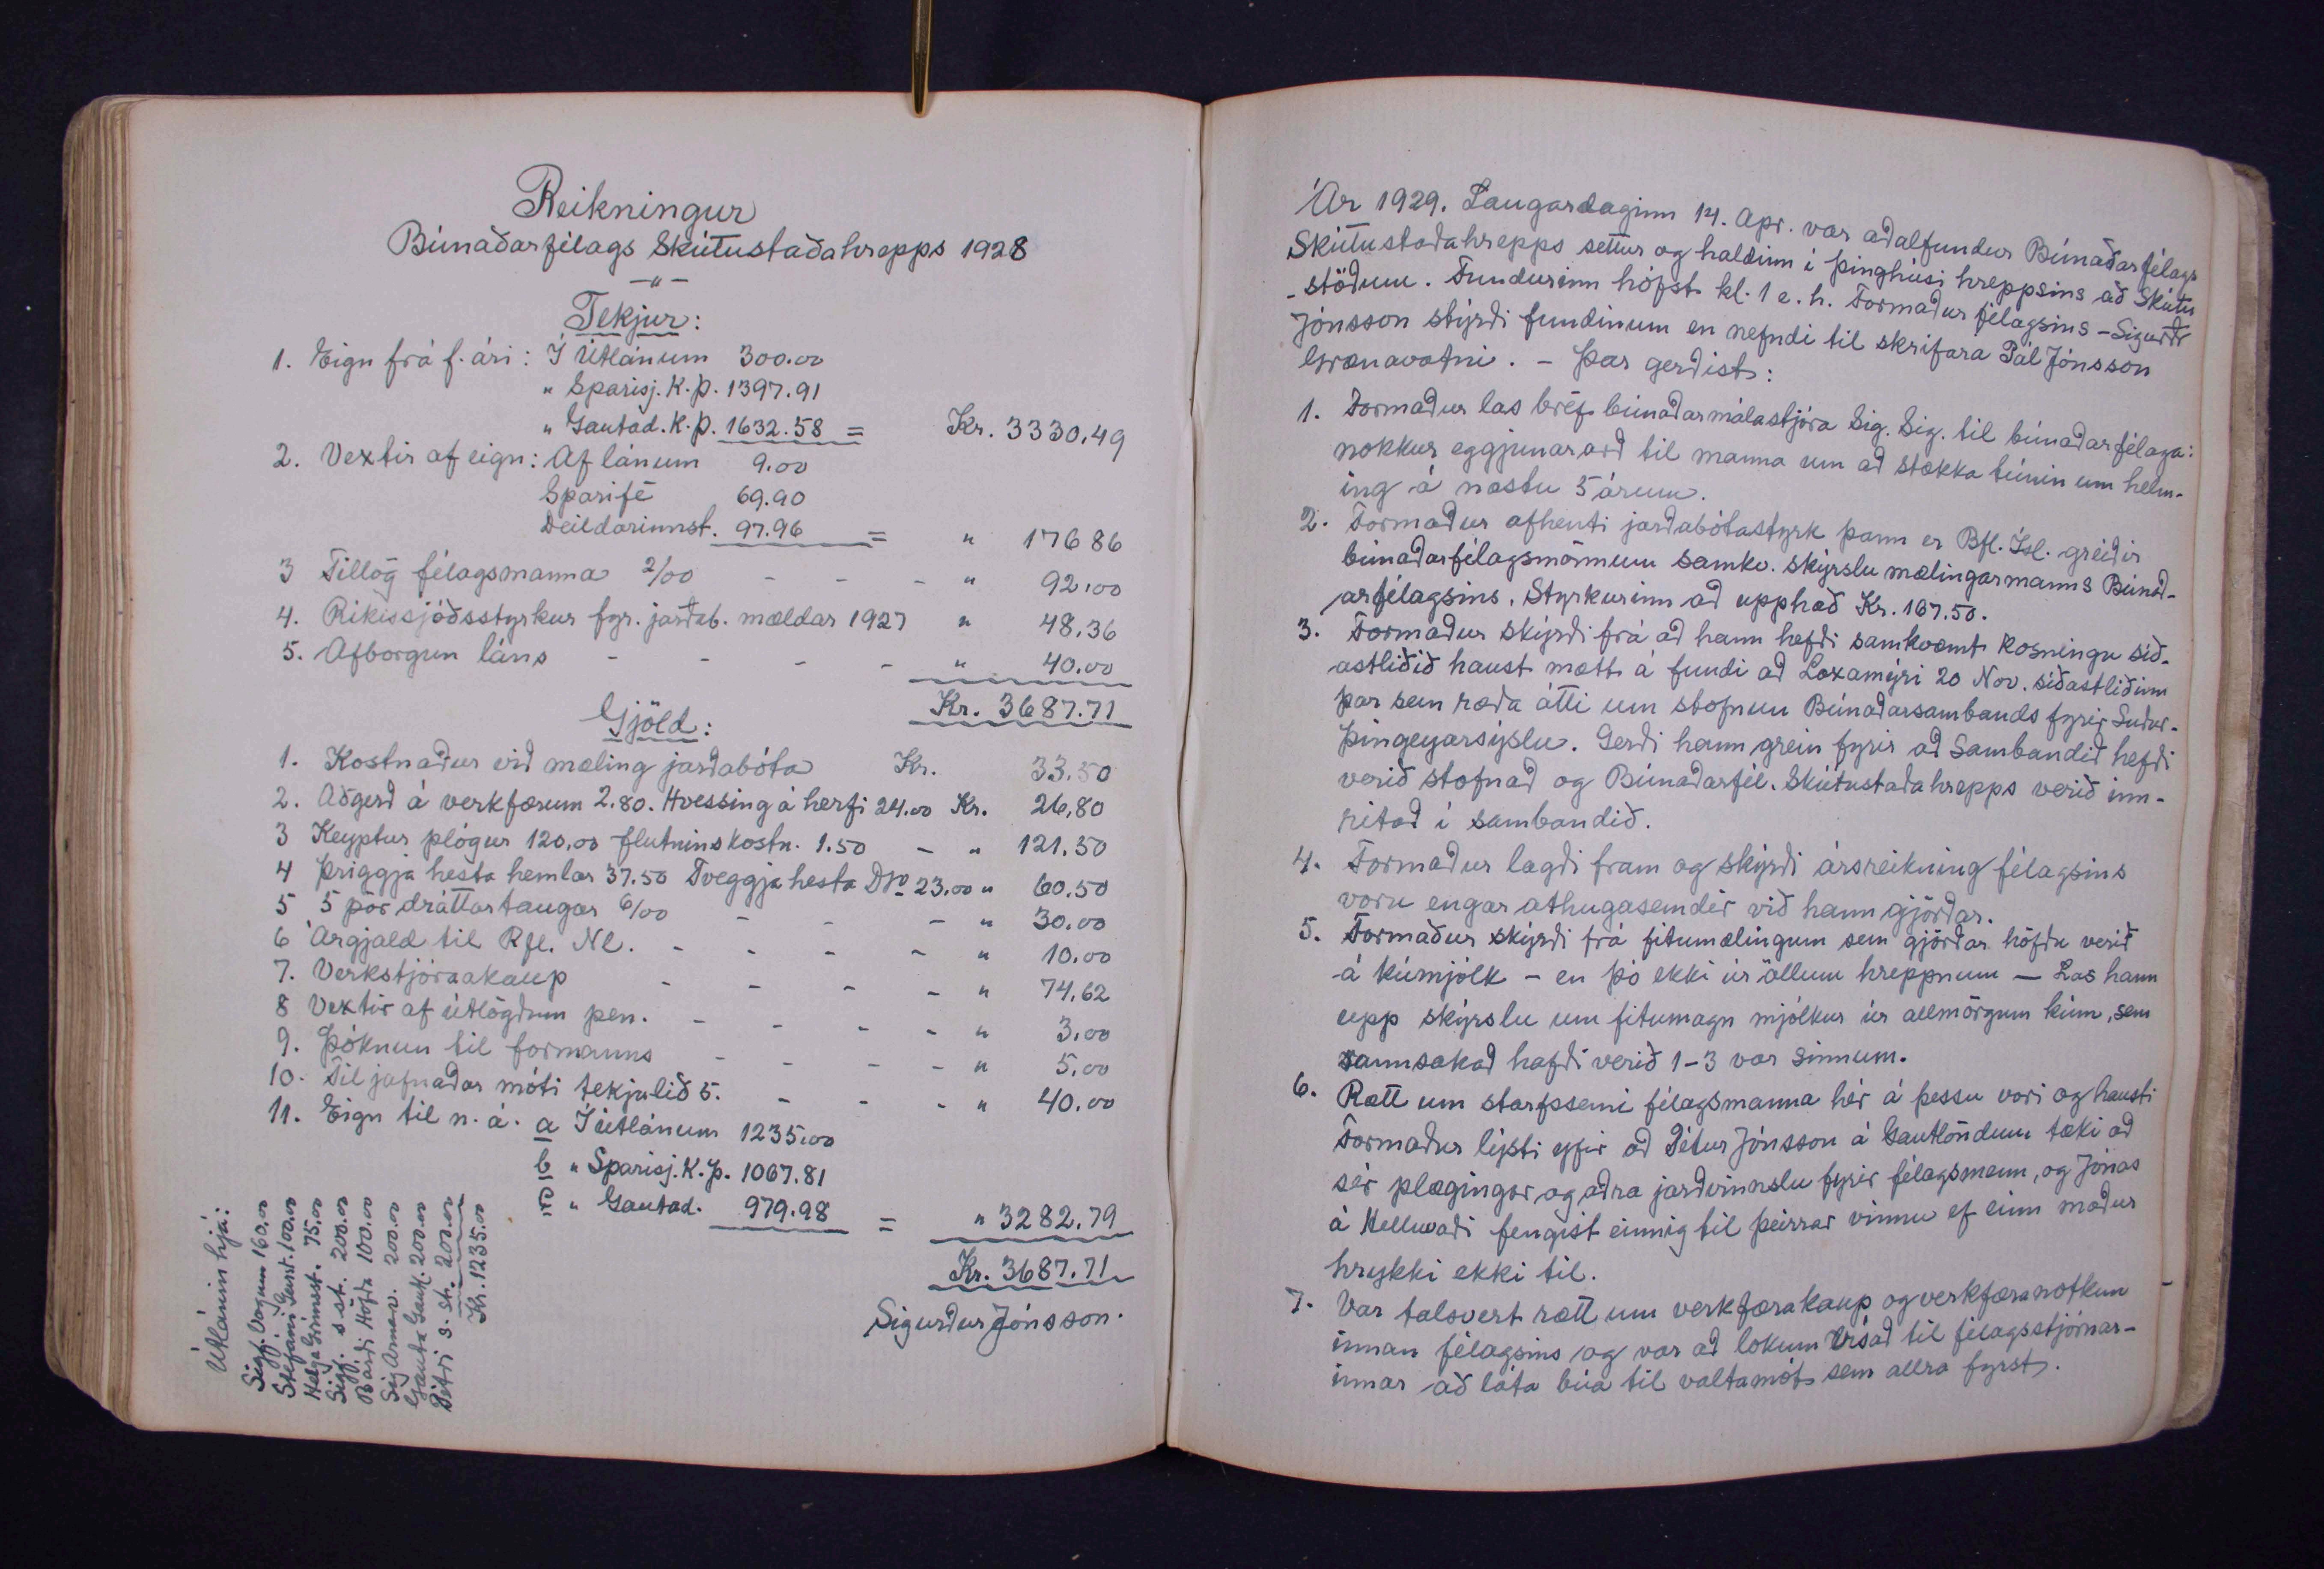 Reikningur
Búnaðarfélags Skútustaðahrepps 1928
-"-
Tekjur:
1. Eign frá f. ári: Í Útlánum 300.00
" Sparisj. K. Þ. 1397.91
" Gautad. K. Þ. 1632.58 = Kr. 3330,49
2. Vextir af eign: Af lánum 9.00
Sparifé 69.90
Deildarinnst. 97.96 = " 176 86
3 Tillög félagsmanna 2/00 - - - " 92,00
4. Ríkissjóðsstyrkur fyr. jarðab. mældar 1927 " 48.36
5. Afborgun láns - - - - " 40.00
Kr. 3687.71
Gjöld:
1. Kostnaður við mæling jarðabóta Kr. 33.50
2. Aðgerð á verkfærum 2.80. Hvessing á herfi 24.00 Kr. 26,80
3 Keyptur plógur 120,00 flutninskostn. 1.50 - " 121.50
4 Þriggja hesta hemlar 37.50 Tveggja hesta Do 23.00 " 60.50
5 5 pör dráttartaugar 6/00 - - - " 30.00
6 Árgjald til Rfl. Nl. - - - - " 10.00
7. Verkstjórakaup - - - - " 74,62
8 Vextir af útlögðum pen. - - - - " 3,00
9. Þóknun til formanns - - - - " 5,00
10. Til jafnaðar móti tekjulið 5. - - - " 40.00
11. Eign til n. á. a Í útlánum 1235,00
b " Sparisj. K. Þ. 1067.81
c " Gautad. 979.98 = " 3282.79
Kr. 3687.71
Sigurður Jónsson.
Útlánin hjá:
Sigf. Vogum 160,00
Stefáni Geirst. 100,00
Helga Grímsst. 75.00
Sigf. s st. 200.00
Bárði Höfða 100.00
Sig Arnarv. 200.00
Gauta Gautl. 200.00
Pétri s. st. 200.00
Kr. 1235.00
Ár 1929. Laugardaginn 14. Apr. var aðalfundur Búnaðarfélags
Skútustaðahrepps settur og haldinn í þinghúsi hreppsins að Skútu
-stöðum. Fundurinn hófst kl. 1 e. h. Formaður félagsins - Sigurðr
Jónsson stýrði fundinum en nefndi til skrifara Pál Jónsson
Grænavatni. - Þar gerðist:
1. Formaður las bréf búnaðarmálastjóra Sig. Sig. til búnaðarfélaga:
nokkur eggjunarorð til manna um að stækka túnin um helm-
ing á næstu 5 árum.
2. Formaður afhenti jarðabótastyrk þann er Bfl. Ísl. greiðir
búnaðarfélagsmönnum samkv. skýrslu mælingarmanns Búnað-
arfélagsins. Styrkurinn að upphæð Kr. 167.50.
3. Formaður skýrði frá að hann hefði samkvæmt kosningu síð-
astliðið haust mætt á fundi að Laxamýri 20 Nov. síðastliðinn
þar sem ræða átti um stofnun Búnaðarsambands fyrir Suður-
Þingeyarsýslu. Gerði hann grein fyrir að Sambandið hefði
verið stofnað og Búnaðarfél. Skútustaðahrepps verið inn-
ritað í sambandið.
4. Formaður lagði fram og skýrði ársreikning félagsins
voru engar athugasemdir við hann gjörðar.
5. Formaður skýrði frá fitumælingum sem gjörðar höfðu verið
á kúmjólk - en þó ekki úr öllum hreppnum - Las hann
upp skýrslu um fitumagn mjólkur úr allmörgum kúm, sem
rannsakað hafði verið 1-3 var sinnum.
6. Rætt um starfsemi félagsmanna hér á þessu vori og hausti
Formaður lýsti yfir að Pétur Jónsson á Gautlöndum tæki að
sér plægingar og aðra jarðvinnslu fyrir félagsmenn, og Jónas
á Helluvaði fengist einnig til þeirrar vinnu ef einn maður
hrykki ekki til.
7. Var talsvert rætt um verkfærakaup og verkfæranotkun
innan félagsins og var að lokum vísað til félagsstjórnar-
innar að láta búa til valtamót sem allra fyrst.